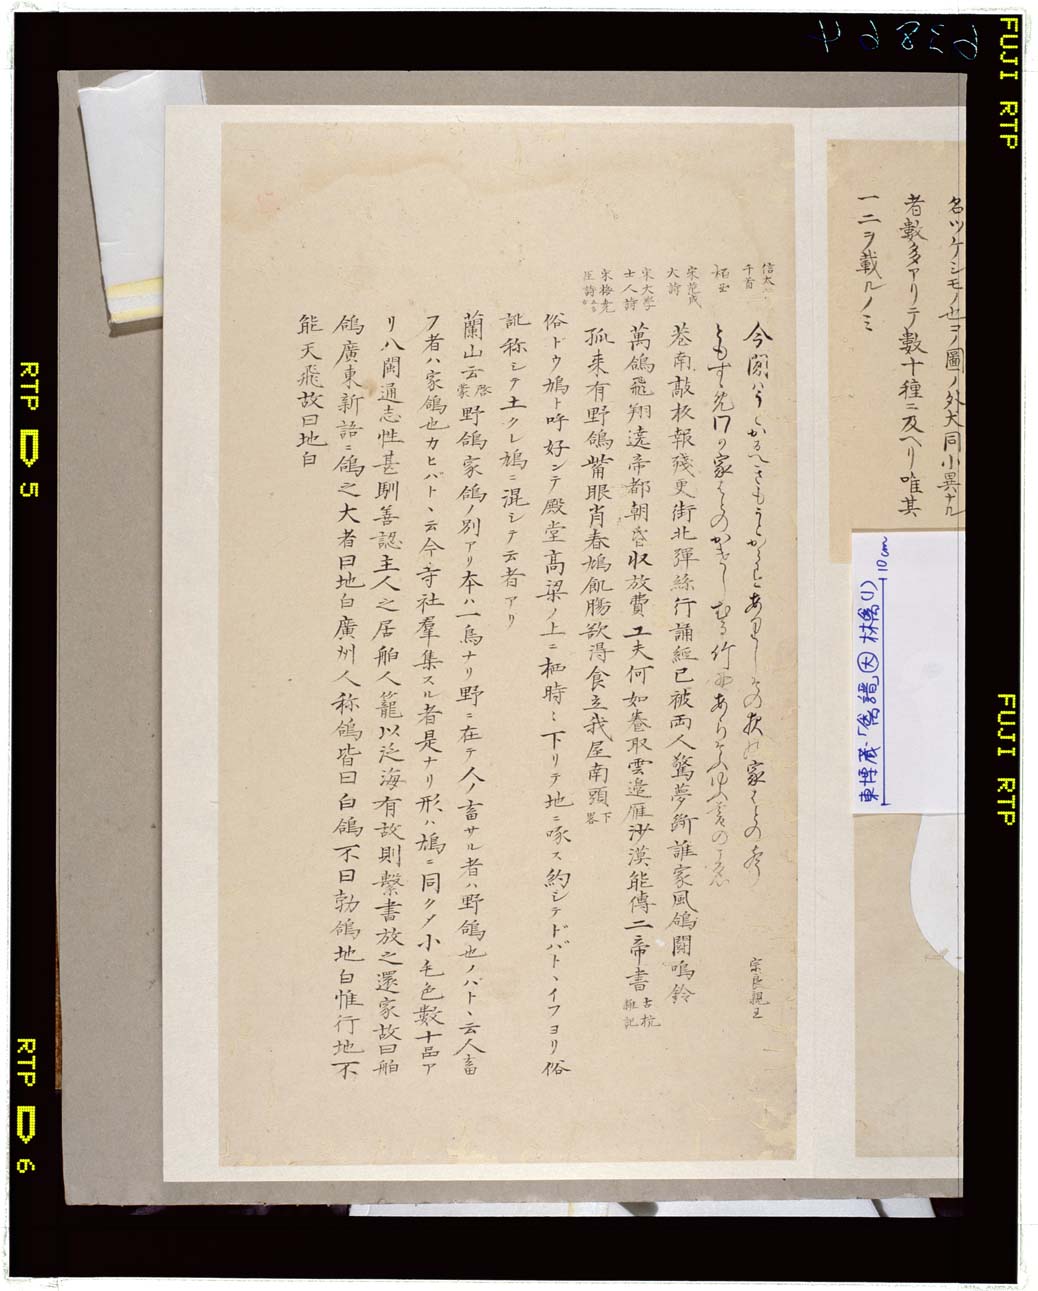 63864
FUJI RTP
FUJI RTP
RTP 5
RTP 6
名ツケシモノ也コノ圖ノ外大同小異ナル
者數多アリテ數十種ニ及ヘリ唯其
一二ヲ載ルノミ
東博蔵「禽譜 大 林禽(1)
10cm
信太
千首
今
家はとの
宗良親王
ともす
家はとの
竹
あらそふ
宋范成
大詩
巷南敲板報殘更街北彈絲行誦經已被両人驚夢斷誰家風鴿鬪鳴鈴
宋大學
士人詩
萬鴿飛翔遶帝都朝昏收放費工夫何如養取雲邊雁沙漠能傳二帝書
古杭
雜記
宋梅堯
臣詩
孤来有野鴿觜眼肖春鳩飢腸欲得食立我屋南頭
下畧
俗ドウ鳩ト呼好ンテ殿堂髙梁ノ上ニ栖時々下リテ地ニ啄ス約シテドバトヽイフヨリ俗
訛称シテ土クレ鳩ニ混シテ云者アリ
蘭山云啓蒙野鴿家鴿ノ別アリ本ハ一鳥ナリ野ニ在テ人ノ畜サル者ハ野鴿也ノバトヽ云人畜
フ者ハ家鴿也カヒバトヽ云今寺社羣集スル者是ナリ形ハ鳩ニ同クメ小毛色數十品ア
リ八閩通志性甚馴善認主人之居舶人籠以泛海有故則繫書放之還家故曰舶
鴿廣東新語ニ鴿之大者曰地白廣州人称鴿皆曰白鴿不曰勃鴿地白惟行地不
能天飛故曰地白